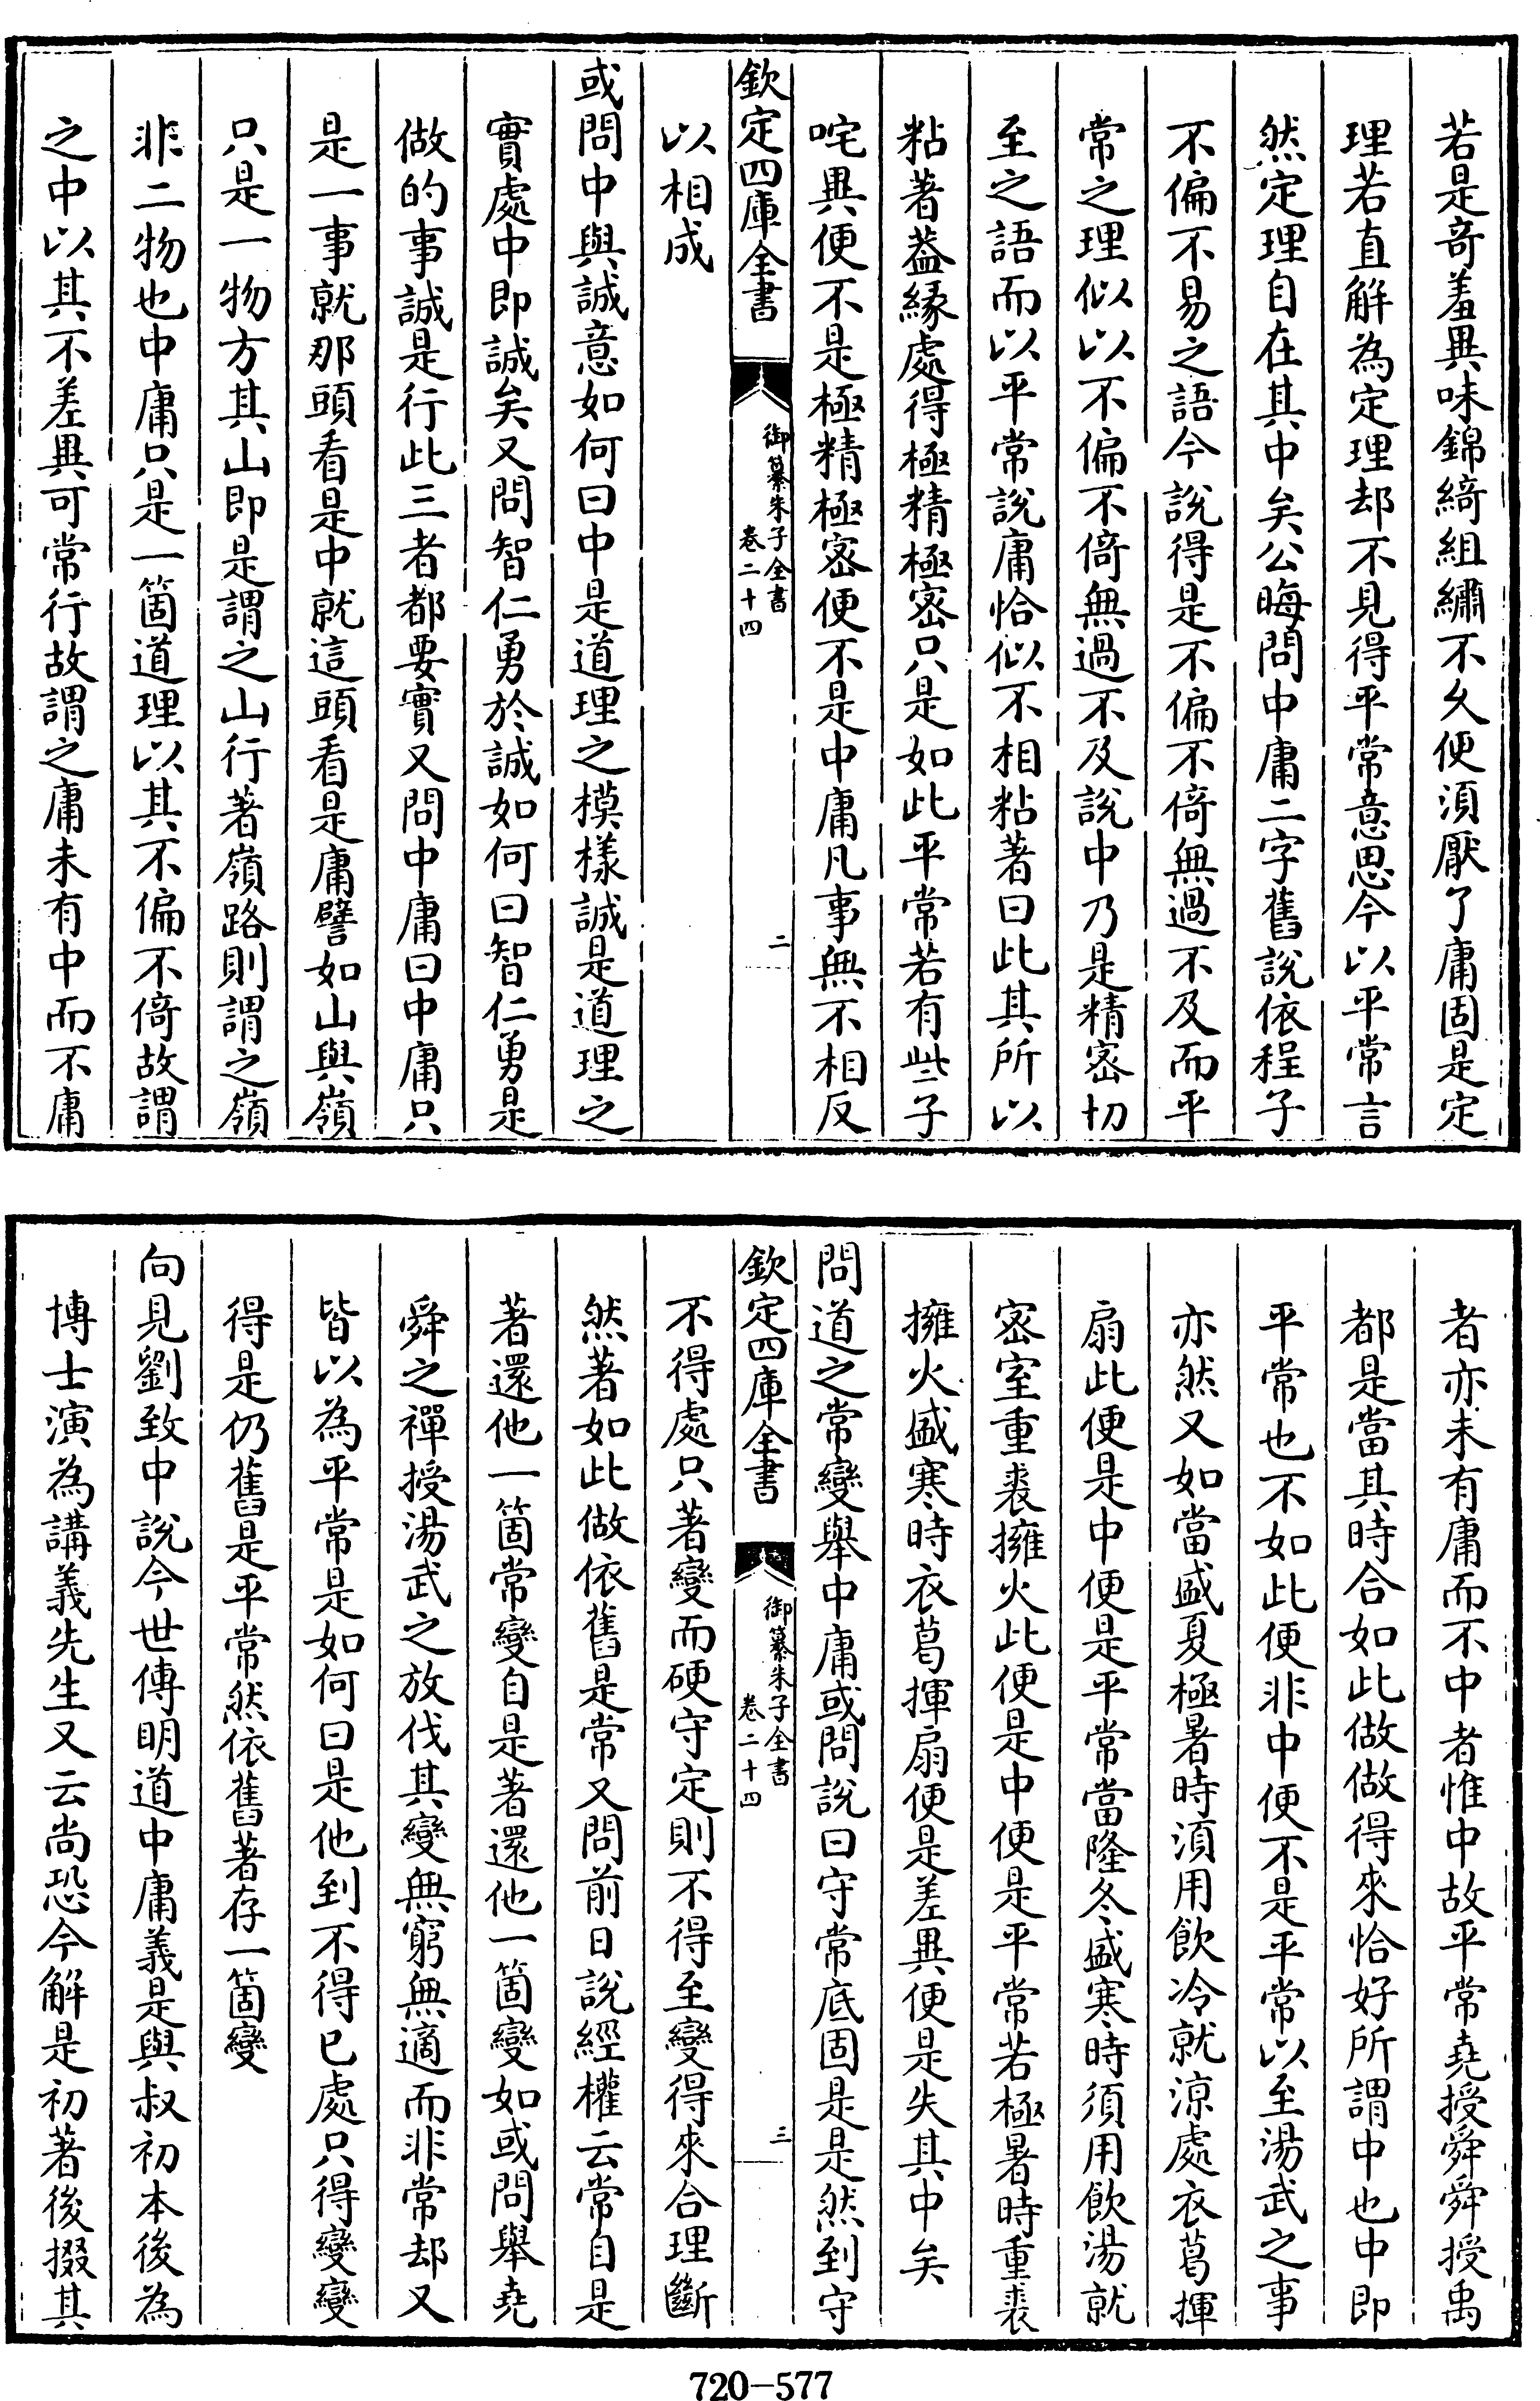 若是竒羞異味錦綺組繡不久便須厭了庸固是定
理若直解為定理却不見得平常意思今以平常言
然定理自在其中矣公晦問中庸二字舊說依程子
不偏不易之語今說得是不偏不倚無過不及而平
常之理似以不偏不倚無過不及說中乃是精宻切
至之語而以平常說庸恰似不相粘著曰此其所以
粘著葢緣處得極精極宻只是如此平常若有些子
咤異便不是極精極宻便不是中庸凡事無不相反
欽定四庫全書
御纂朱子全書
卷二十四
二
以相成
或問中與誠意如何曰中是道理之模樣誠是道理之
實處中即誠矣又問智仁勇於誠如何曰智仁勇是
做的事誠是行此三者都要實又問中庸曰中庸只
是一事就那頭看是中就這頭看是庸譬如山與嶺
只是一物方其山即是謂之山行著嶺路則謂之嶺
非二物也中庸只是一箇道理以其不偏不倚故謂
之中以其不差異可常行故謂之庸未有中而不庸
者亦未有庸而不中者惟中故平常堯授舜舜授禹
都是當其時合如此做做得來恰好所謂中也中即
平常也不如此便非中便不是平常以至湯武之事
亦然又如當盛夏極暑時須用飲冷就涼處衣葛揮
扇此便是中便是平常當隆冬盛寒時須用飲湯就
宻室重裘擁火此便是中便是平常若極暑時重裘
擁火盛寒時衣葛揮扇便是差異便是失其中矣
問道之常變舉中庸或問說曰守常底固是是然到守
欽定四庫全書
御纂朱子全書
卷二十四
三
不得處只著變而硬守定則不得至變得來合理斷
然著如此做依舊是常又問前日說經權云常自是
著還他一箇常變自是著還他一箇變如或問舉堯
舜之禪授湯武之放伐其變無窮無適而非常却又
皆以為平常是如何曰是他到不得已處只得變變
得是仍舊是平常然依舊著存一箇變
向見劉致中說今世傳明道中庸義是與叔初本後為
博士演為講義先生又云尚恐今解是初著後掇其
720-577